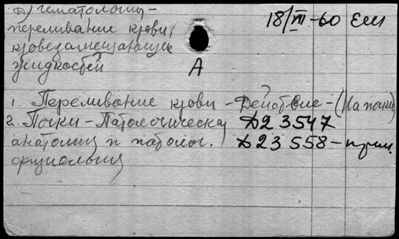 гематология-
переливание крови,
кровезамещающих
жидкостей
18/VII-60
А
1. Переливание крови - Действие - (На почки)
2. Почки - Патологическая Д23547
анатомия и патолог. Д23558-
физиология